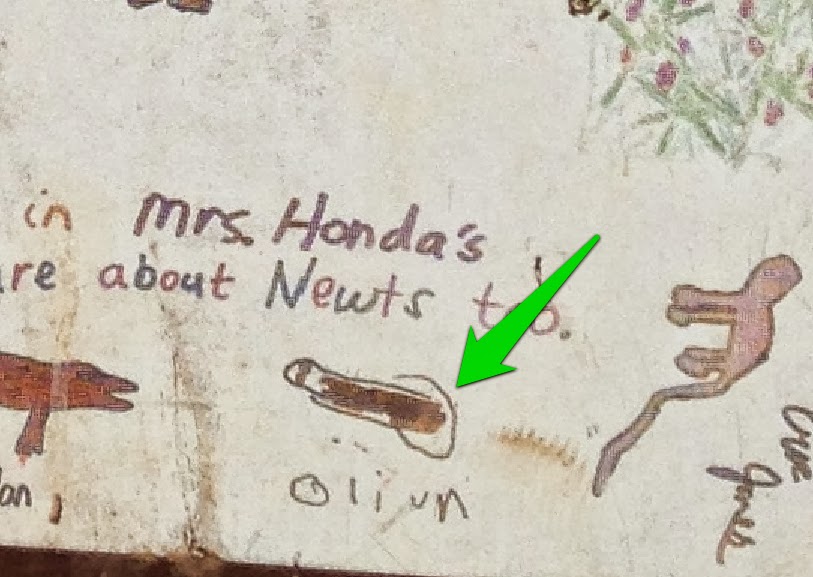 in Mrs. Honda's
re about Newts too.
on,
Olivn
Jones